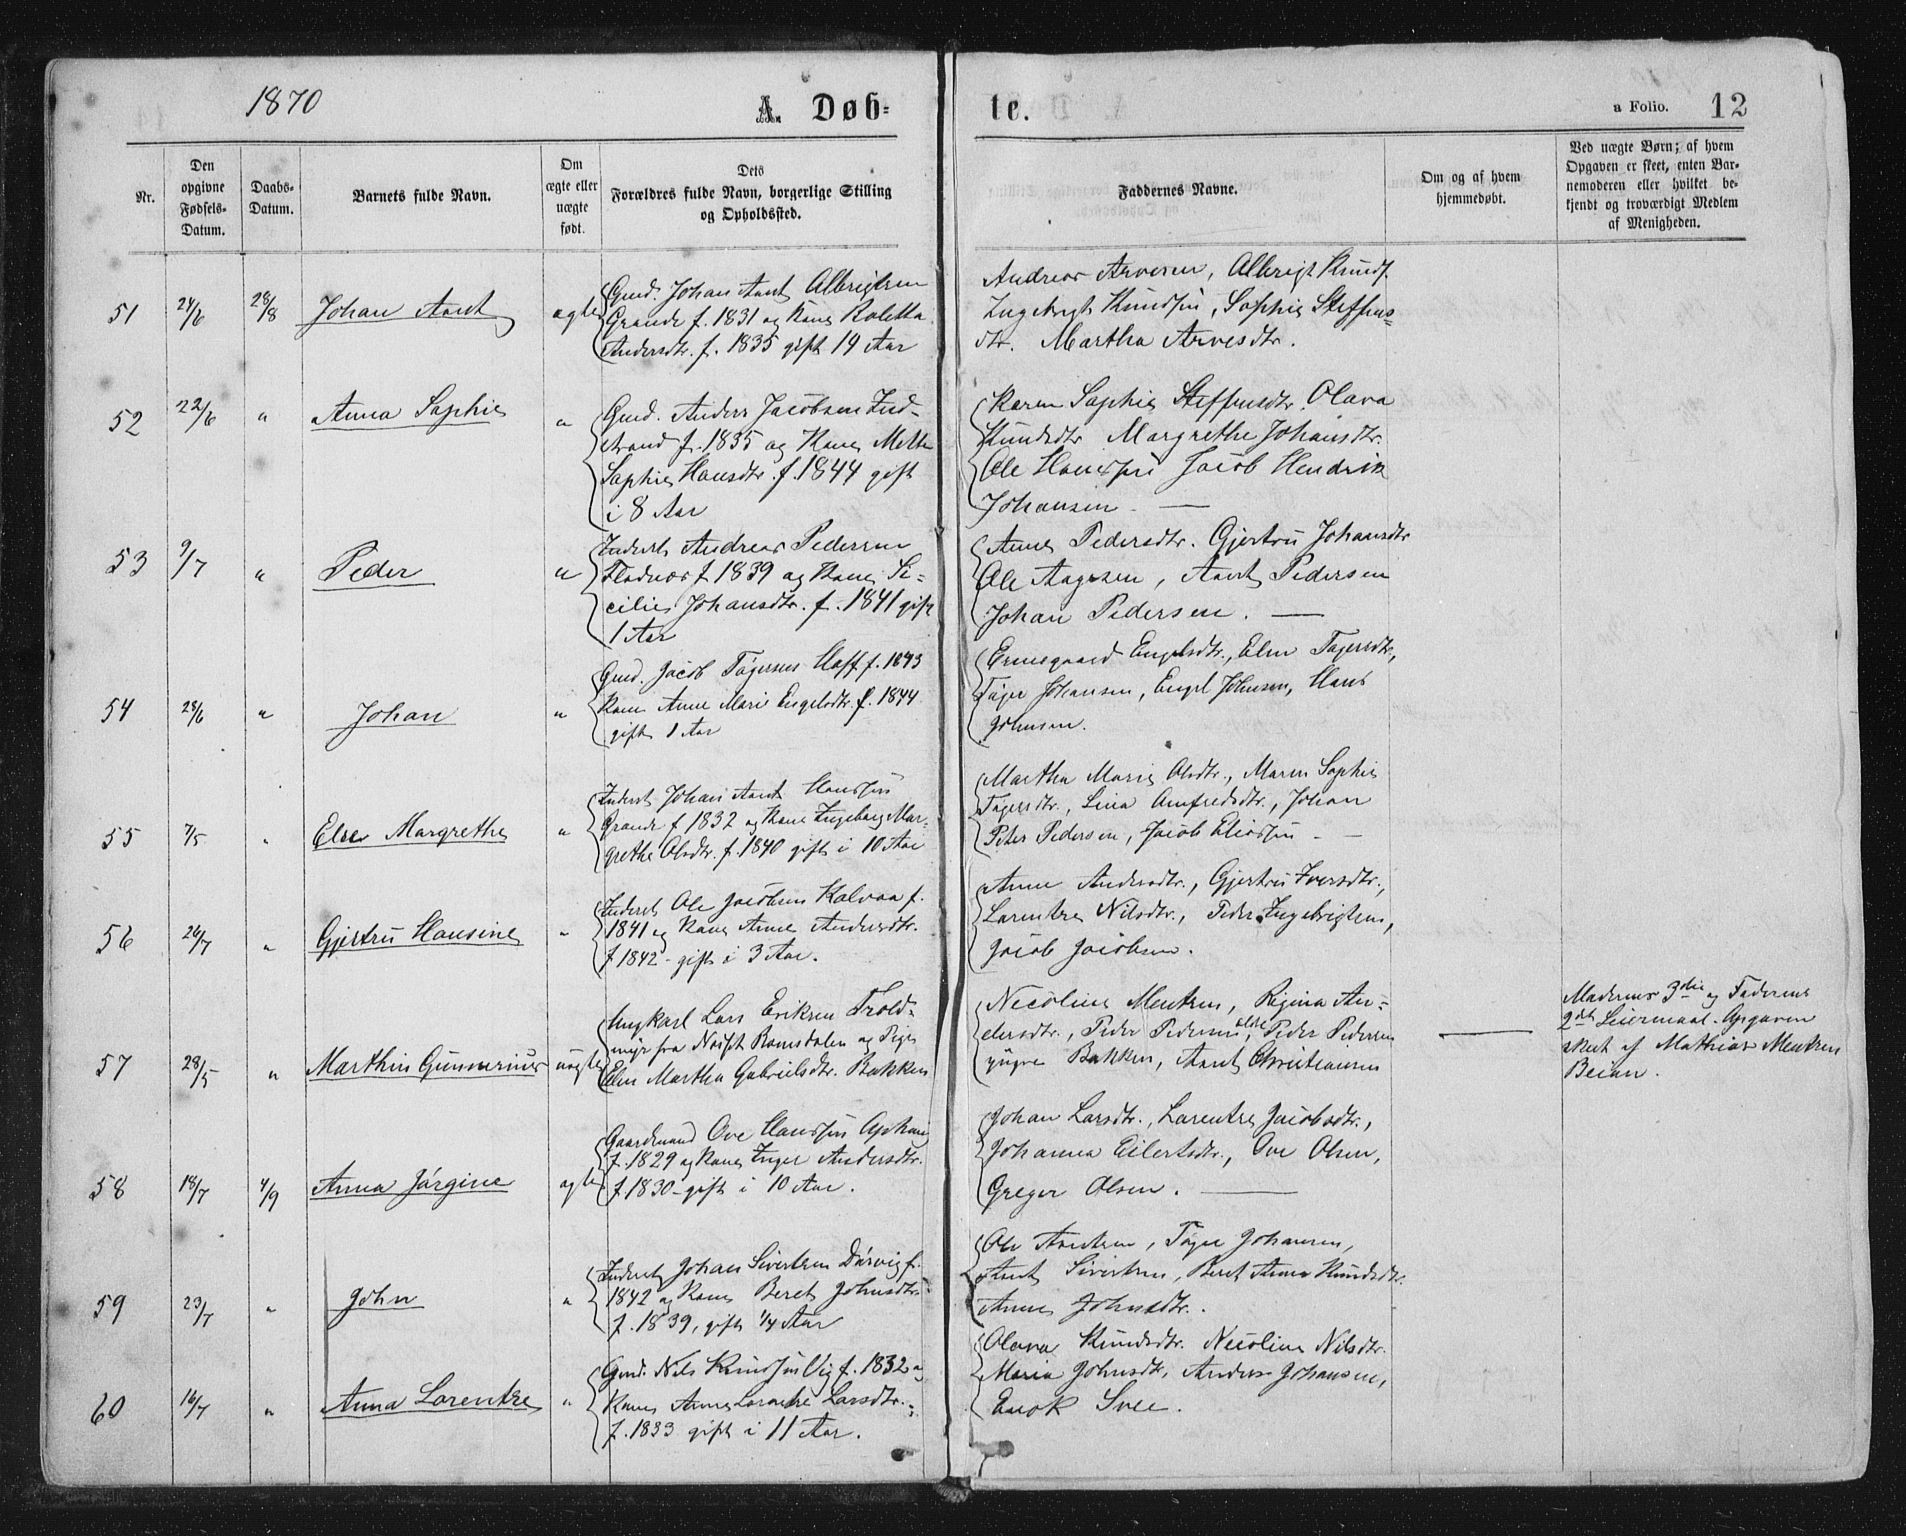 1870
A. Døb=
te.
a Folio. 12
Nr.
Den opgivne Fødsels-Datum.
Daabs-Datum.
Barnets fulde Navn.
Om ægte eller uægte født.
Dets Forældres fulde Navn, borgerlige Stilling og Opholdssted.
Faddernes Navne.
Om og af hvem hjemmedøbt.
Ved uægte Børn; af hvem Opgaven er skeet, enten Barnemoderen eller hvilket bekjendt og troværdigt Medlem af Menigheden.
51 24/6 28/8 Johan Aant ægte
Gmd. Johan Aant Albrigtsen
Grande f. 1831 og Kone Roletta
Andersdtr. f. 1835 gift 19 Aar
Andreas Arvesen, Albrigt Knuds.
Ingebrigt Knudsen, Sophie Steffens=
dtr. Martha Arvesdtr.
52 22/6 " Anna Sophie "
Gmd. Anders Jacobsen Ind-
strand f. 1835 og Kone Mette
Sophie Hansdtr. f. 1844 gift
i 8 Aar
Karen Sophie Steffensdtr. Olava
Knudsdtr Margrethe Johansdtr.
Ole Hansen Jacob Hendrik
Johansen. —
53 9/7 " Peder "
Inderst Andreas Pedersen
Fladnes f 1839 og Kone Si-
cilie Johansdtr. f. 1841 gift
1 Aar
Anne Pedersdtr. Gjertru Johansdtr
Ole Aagesen, Aant Pedersen
Johan Pedersen. —
54 28/6 " Johan "
Gmd. Jacob Tøgersen Hoff f. 1843
Kone Anne Marie Engelsdtr. f. 1844
gift 1 Aar
Ermegaard Engelsdtr., Elen Tøgersdtr,
Tøger Johansen, Engel Johnsen, Hans
Johnsen.
55 7/5 " Else Margrethe "
Inderst Johan Aant Hansen
Grande f 1832 og Kone Ingeborg Mar-
grethe Olsdtr. f. 1840 gift i 10 Aar
Martha Marie Olsdtr., Maren Sophie
Tøgersdtr., Lina Arnfredsdtr., Johan
Peter Pedersen, Jacob Eliassen —
56 24/7 " Gjertru Hansine "
Inderst Ole Jacobsen Kalvaa f.
1841 og Kone Anne Andersdtr.
f 1842 - gift i 3 Aar.
Anne Andersdtr., Gjertru Iversdtr.,
Larentze Nilsdtr., Peder Ingebrigtsen,
Jacob Jacobsen.
57 28/5 " Marthin Gunnerius uægte
Ungkarl Lars Eriksen Trold-
myr fra Romsdalen og Pige
Elen Martha Gabrielsdtr. Bakken
Necoline Mentsen, Regina An=
dersdtr., Peder Pedersen ældre, Peder Pedersen
yngre Bakken, Aant Christiansen
—
Moderens 3die og Faderens
2det Leiermaal. Opgaven
skeet af Mathias Mentsen
Beian.
58 18/7 4/9 Anna Jørgine ægte
Gaardmand Ove Hansen Ophaug
f. 1829 og Kone Inger Andersdtr.
f. 1830 - gift i 10 Aar.
Johan Larsdtr., Larentze Jacobsdtr.,
Johanna Eilertsdtr., Ove Olsen,
Greger Olsen. —
59 23/7 " John "
Inderst Johan Sivertsen Dørvig f.
1842 og Kone Beret Johnsdtr.
f. 1839, gift 1/4 Aar
Ole Aantsen, Tøger Johansen,
Aant Sivertsen, Beret Anna Knudsdtr.
Anne Johnsdtr.
60 16/7 " Anna Larentze "
Gmd. Nils Knudsen Vig f. 1832 og
Kone Anne Larentze Larsdtr.
f. 1833 gift i 11 Aar.
Olava Knudsdtr. Necoline Nilsdtr.
Maria Johnsdtr, Anders Johansen,
Enok Svee.